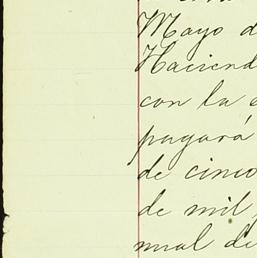 Mayo d
Haciend
con la
pagará
de cinco
de mil
nual de